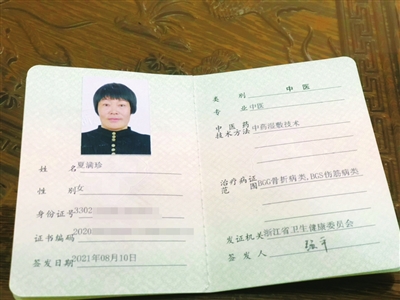 姓 名 夏满珍
性 别 女
身份证号 3302
证书编码 2020
签发日期 2021年08月10日
类 别 中 医
专 业 中医
中 医 药
技术方法 中药湿敷技术
治疗病证
范 围 BGG骨折病类,BGS伤筋病类
发证机关 浙江省卫生健康委员会
签 发 人